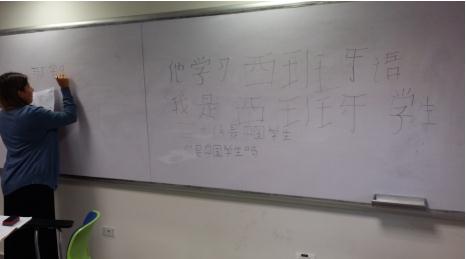 他学习西班牙语
我是西班牙学生
你是中国学生
你是中国学生吗